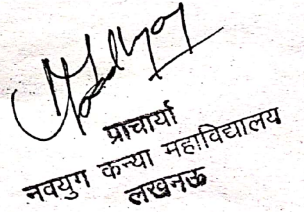 प्राचार्या
नवयुग कन्या महाविद्यालय
लखनऊ